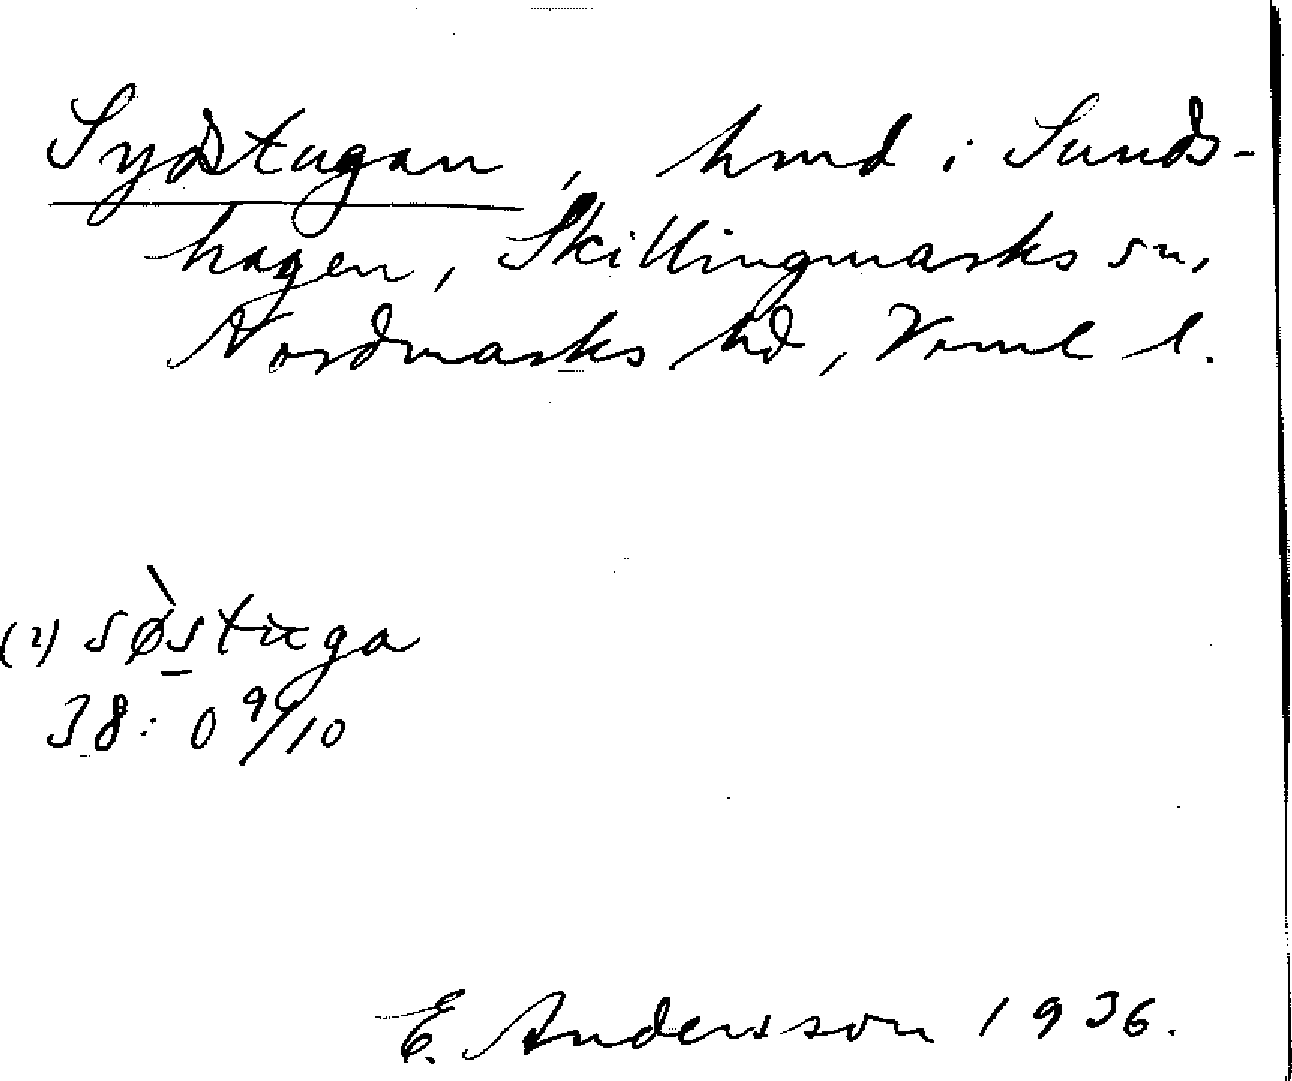 Sydstugan, hmd i Sunds-
hagen, Skillingmarks sn,
Nordmarks hd, Vrml l.
(2) sø̀stuga
38: 0 9/10
E. Andersson 1936.